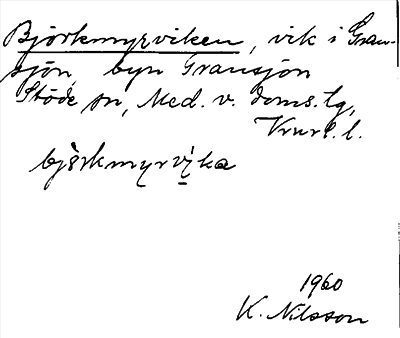 Björkmyrviken, vik i Gran-
sjön, byn Gransjön
Stöde sn, Med. v. doms.tg,
Vnrl. l.
björkmyrvika
1960
K. Nilsson